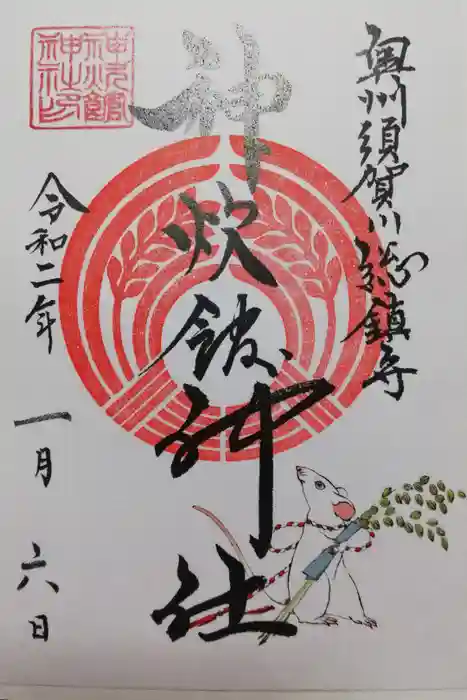 奥州須賀川総鎮守
神炊館神社
令和二年
一月
六日
神炊館
神社印